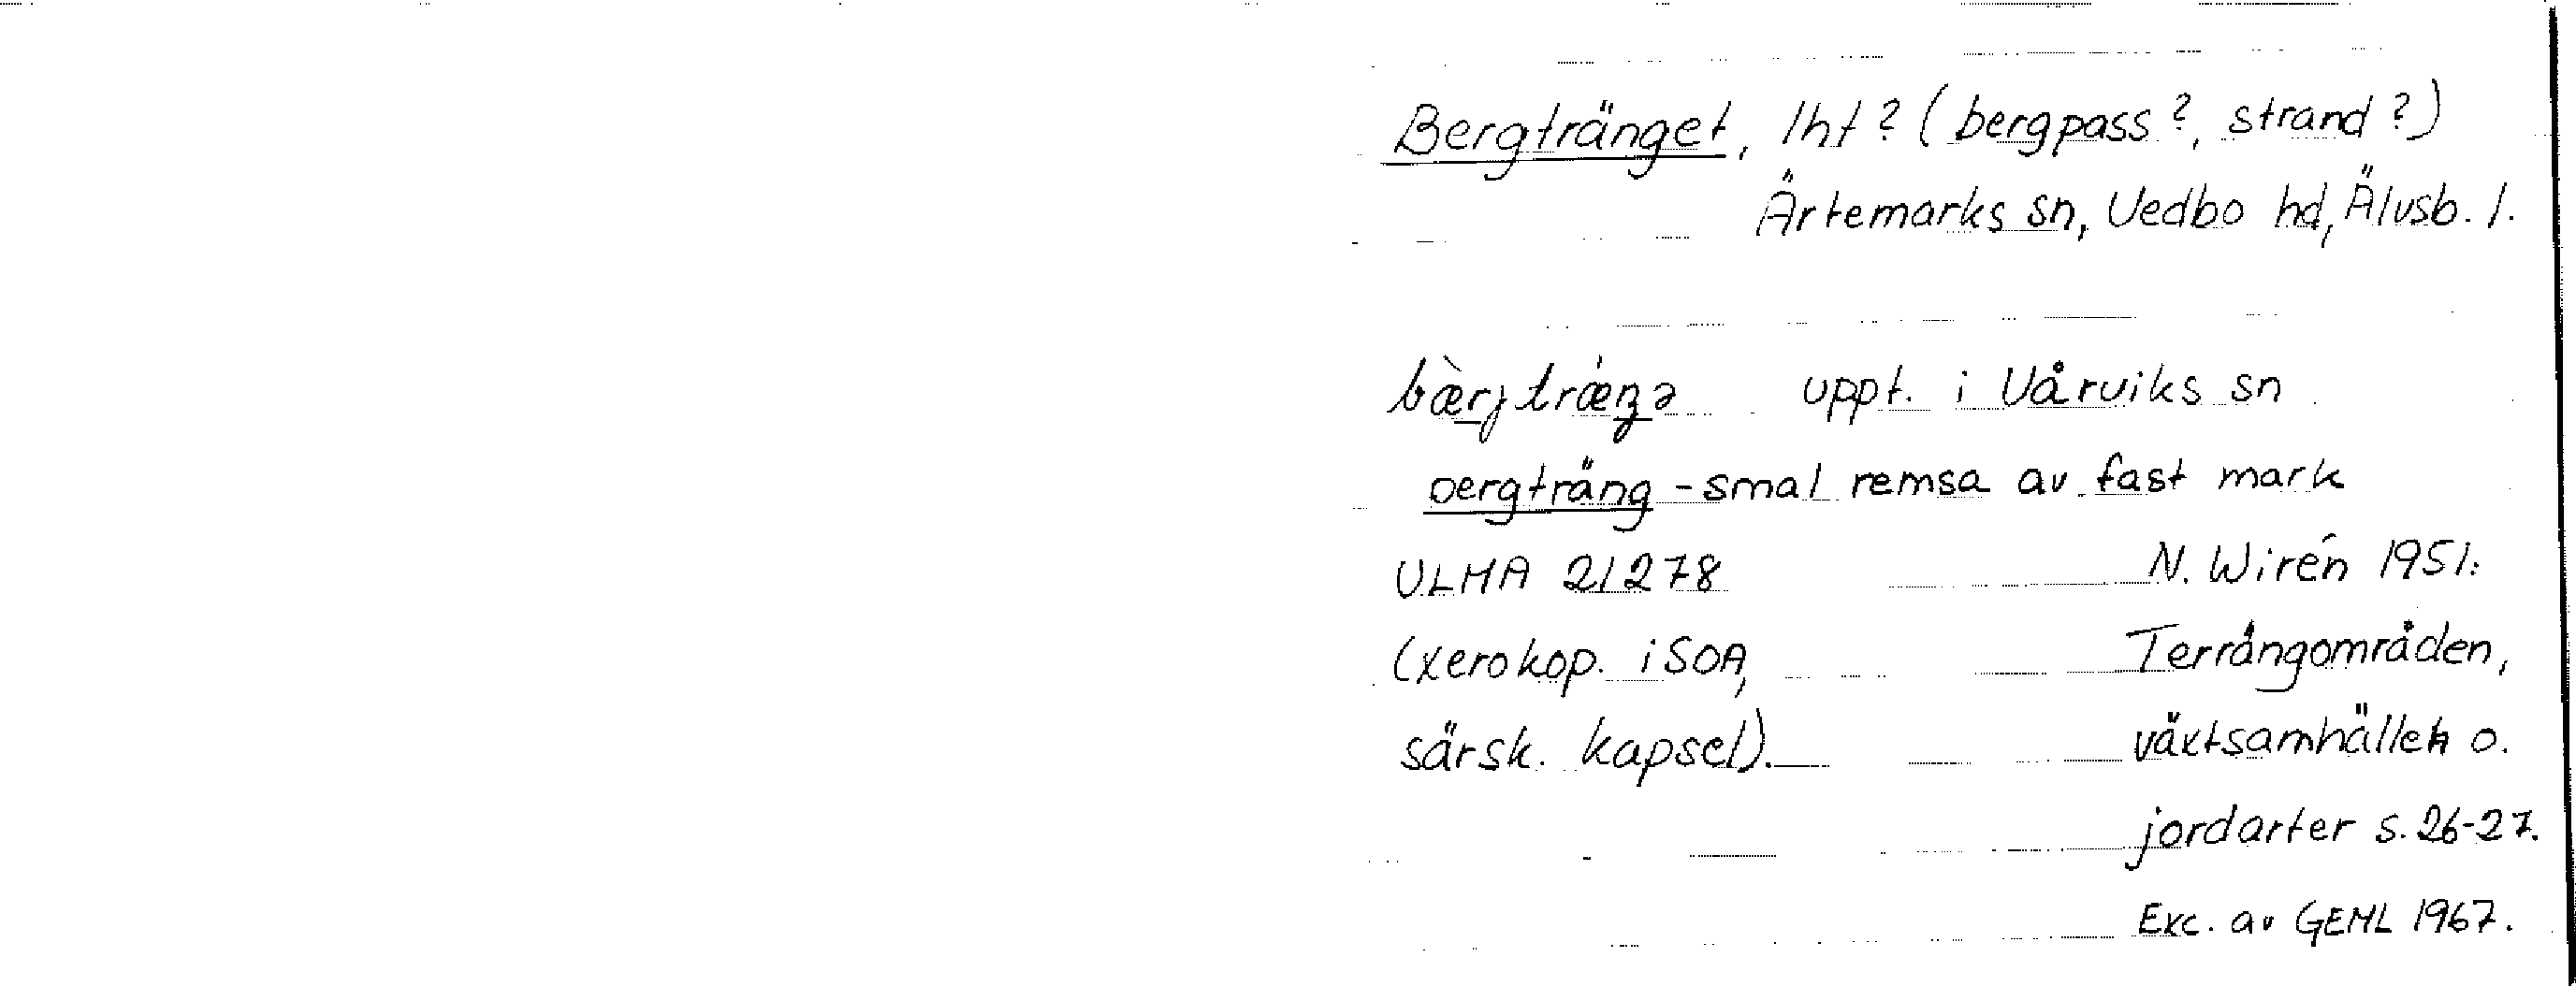 Bergtränget, lht? (bergpass?, strand?)
Ärtemarks sn, Vedbo hd, Älvsb. l.
bæ̀rjtræ̀ŋə uppt. i Vårviks sn
bergträng - smal remsa av fast mark
ULMA 21278 N. Wirén 1951:
(xerokop. i SOA, Terrängområden,
särsk. kapsel). växtsamhällen o.
jordarter s. 26-27.
Exc. av GEML 1967.